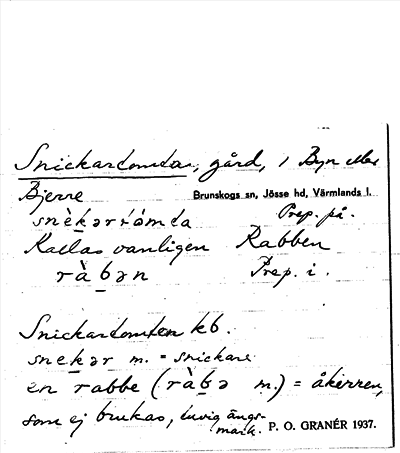 Snickartomta, gård, i Byn eller
Bjerre Brunskogs sn, Jösse hd, Värmlands l.
snèkərtómta Prep. på.
Kallas vanligen Rabben
ràbən Prep. i.
Snickartomten kb.
snekər m. = snickare
en rabbe (ràbə m.) = åkerren,
som ej brukas, ängs-
mark. P. O. GRANÉR 1937.